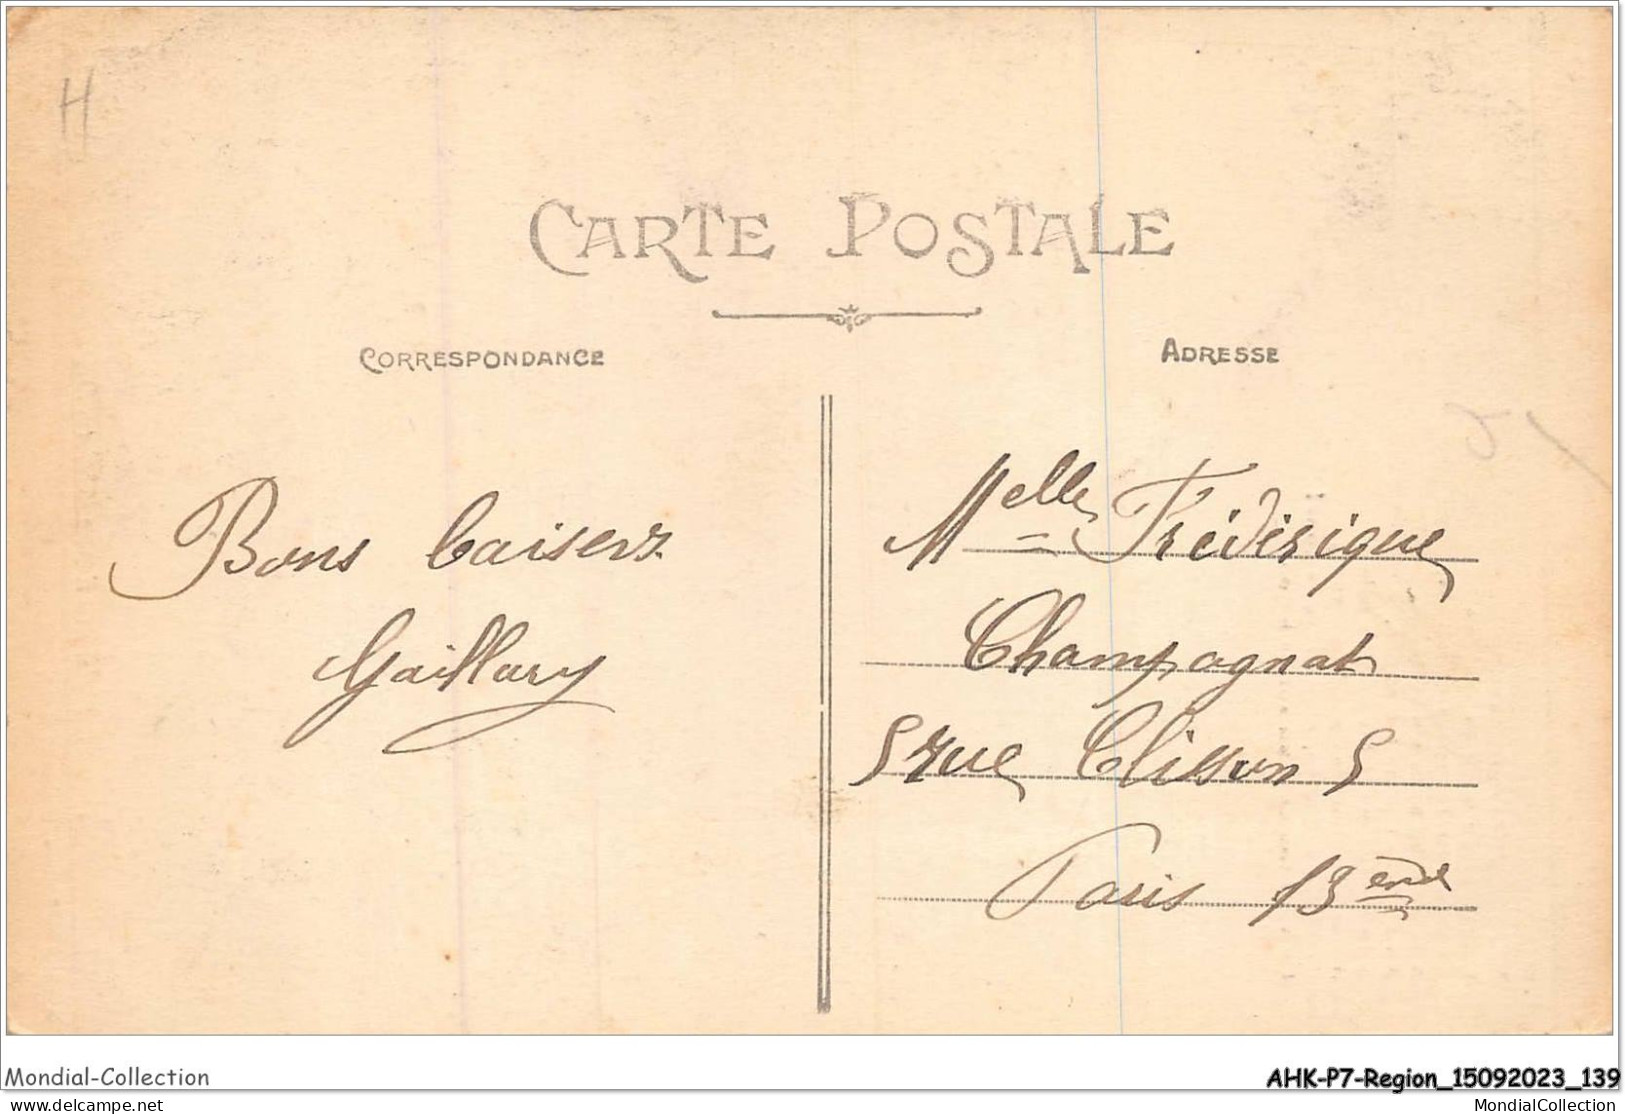 H
CARTE POSTALE
CORRESPONDANCE
ADRESSE
Bons baisers
Gaillary
Melle Frédérique
Champagnat
5 rue Clisson 5
Paris 13eme
Mondial-Collection
AHK-P7-Region_15092023_139
www.delcampe.net
MondialCollection